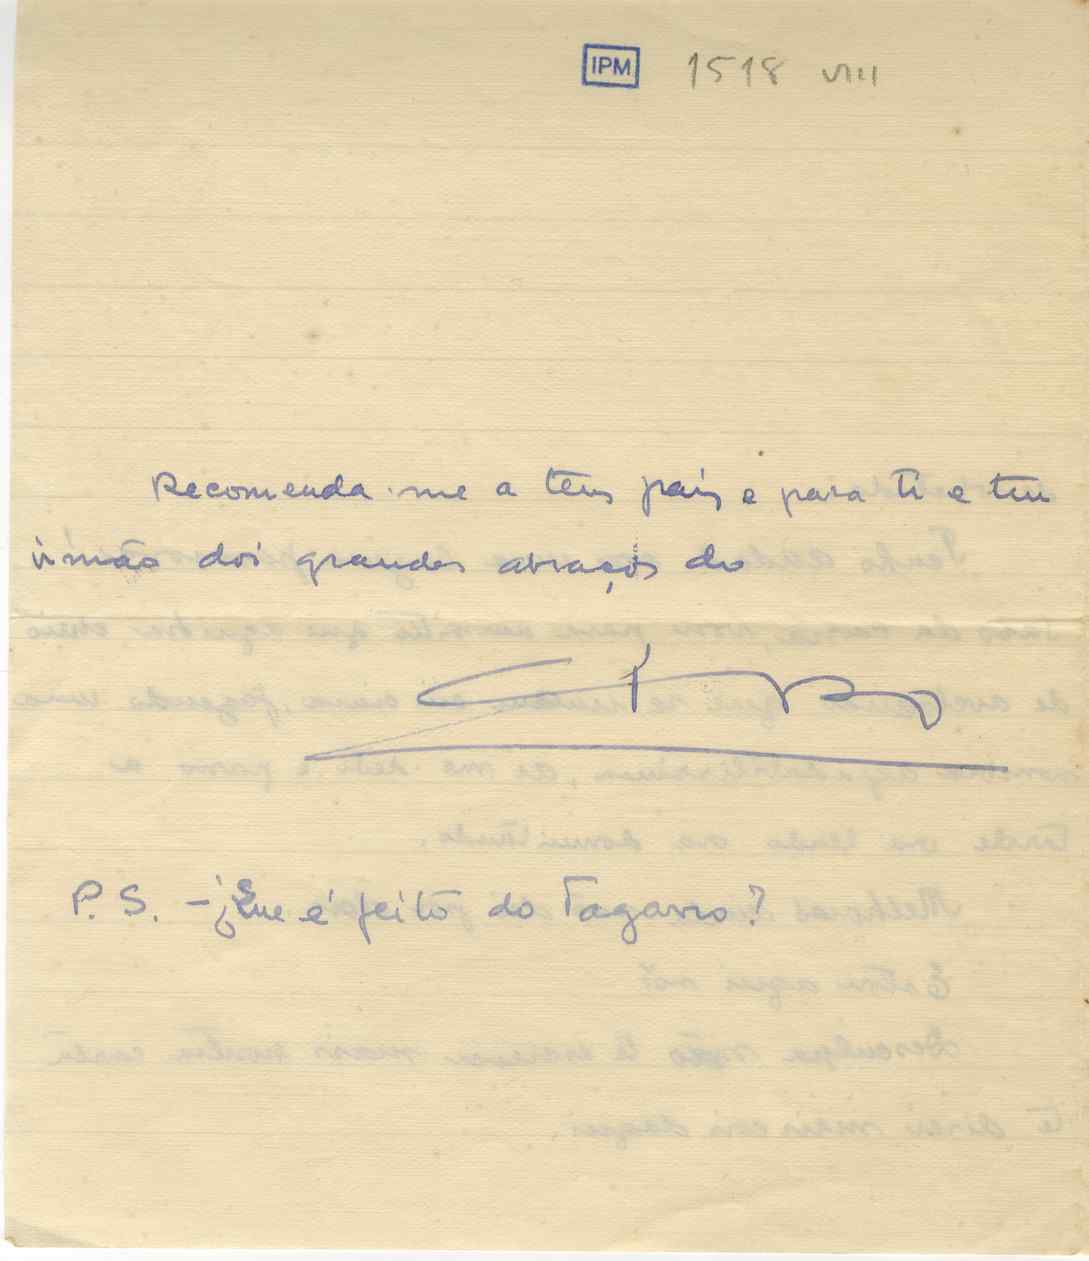 IPM 1518 VIII
Recomenda-me a teus pais e para ti e teu
irmão dois grandes abraços do
P. S. - ¿Que é feito do Tagarro?